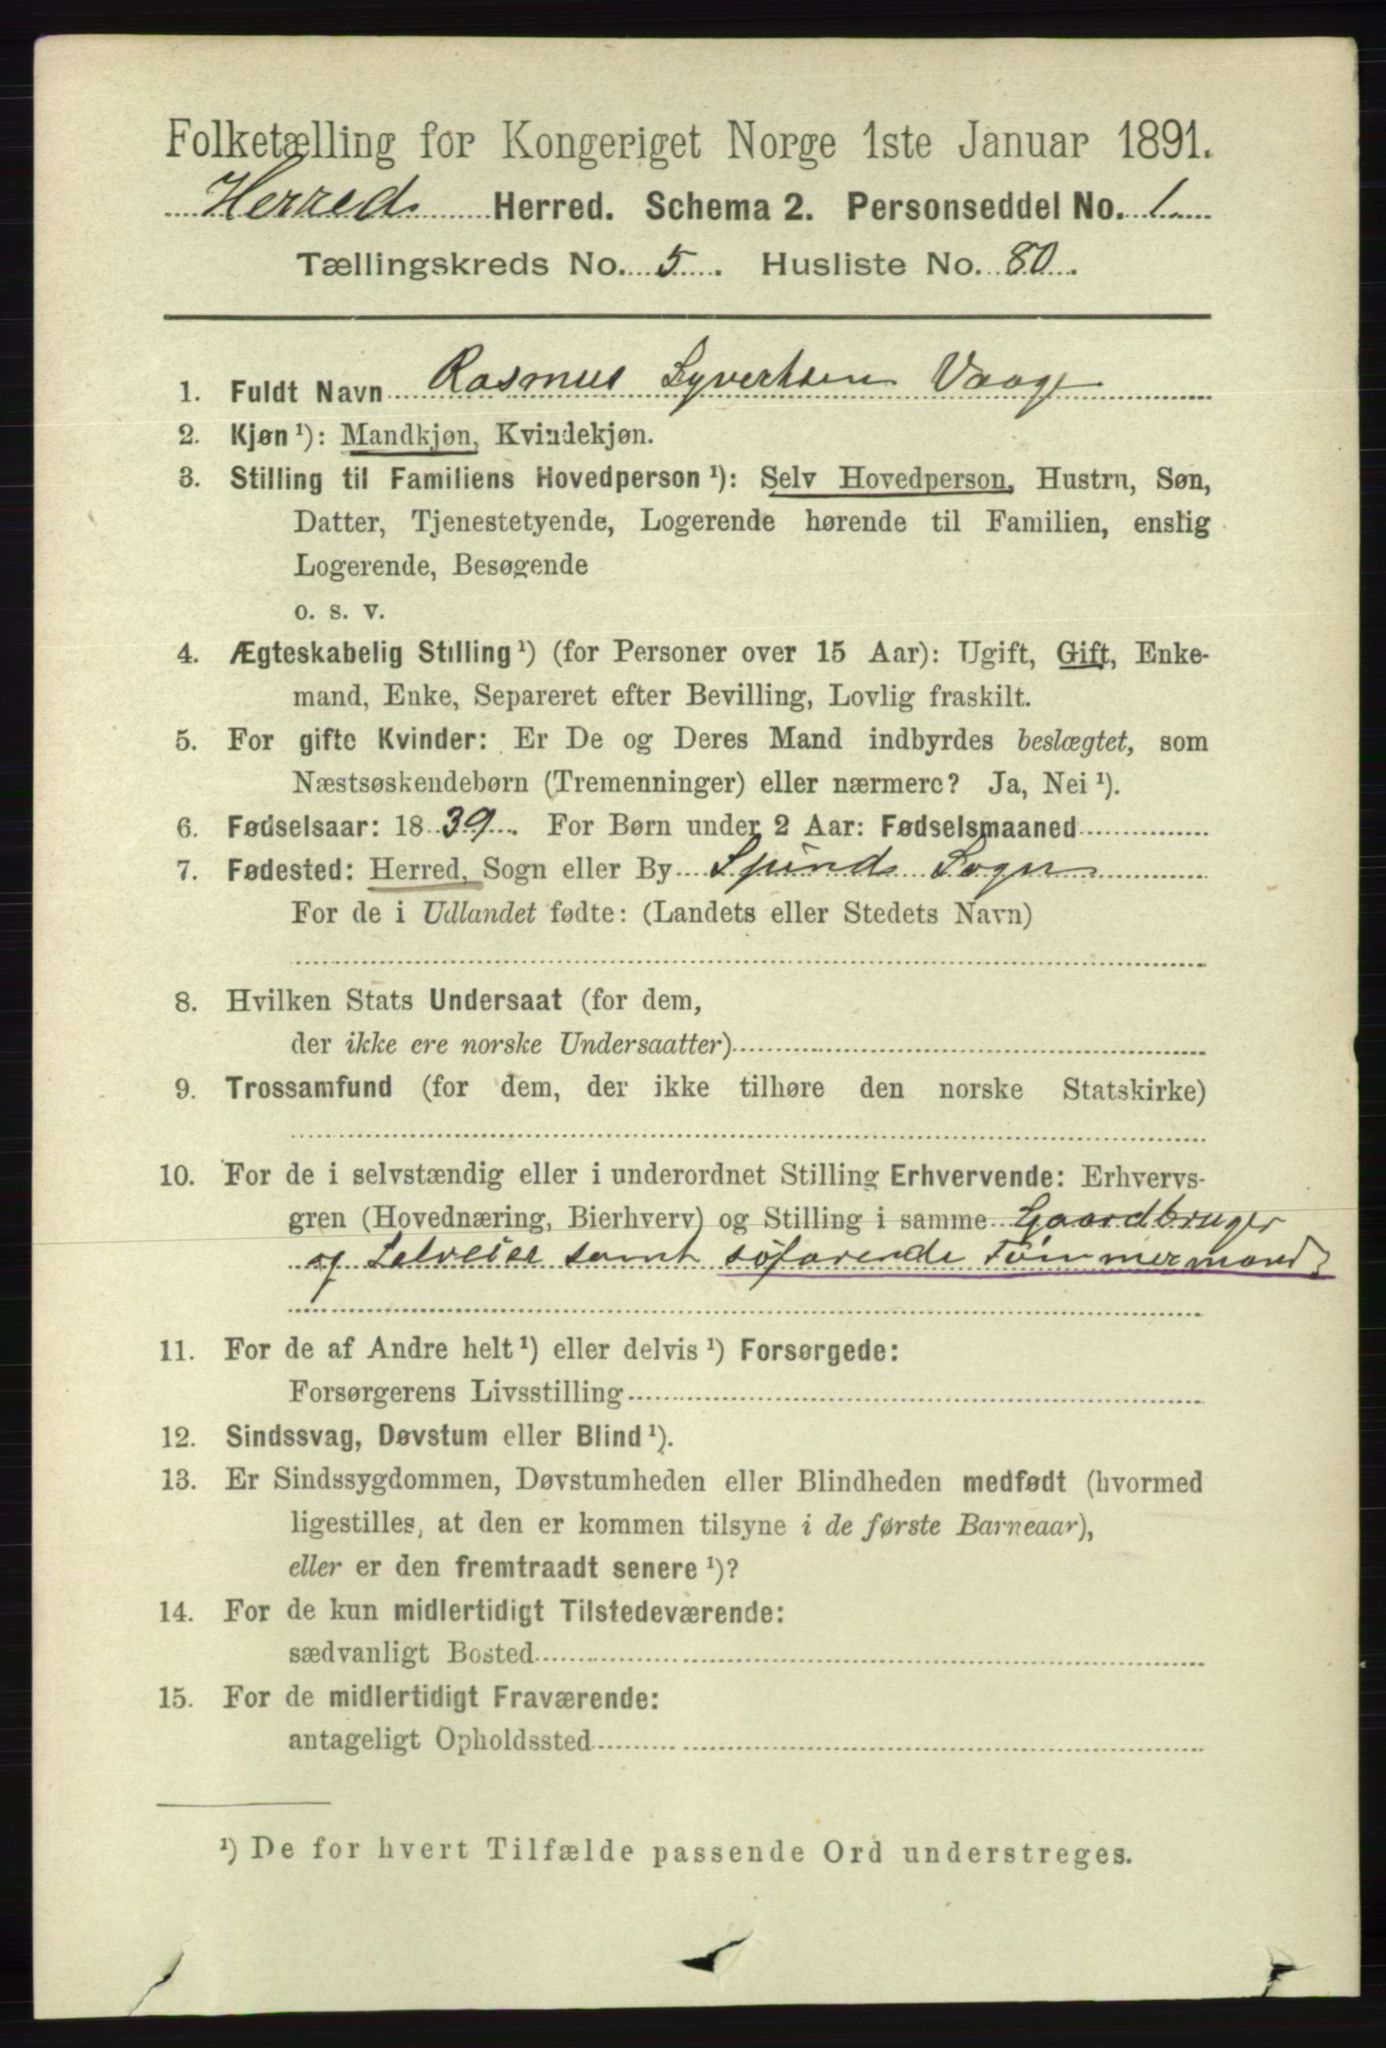 Folketælling for Kongeriget Norge 1ste Januar 1891.
Herred Herred. Schema 2. Personseddel No. 1
Tællingskreds No. 5. Husliste No. 80.
1. Fuldt Navn Rasmus Syvertsen Vaage
2. Kjøn¹): Mandkjøn, Kvindekjøn.
3. Stilling til Familiens Hovedperson¹): Selv Hovedperson, Hustru, Søn,
Datter, Tjenestetyende, Logerende hørende til Familien, enslig
Logerende, Besøgende
o. s. v.
4. Ægteskabelig Stilling¹) (for Personer over 15 Aar): Ugift, Gift, Enke-
mand, Enke, Separeret efter Bevilling, Lovlig fraskilt.
5. For gifte Kvinder: Er De og Deres Mand indbyrdes beslægtet, som
Næstsøskendebørn (Tremenninger) eller nærmere? Ja, Nei¹).
6. Fødselsaar: 1839. For Børn under 2 Aar: Fødselsmaaned
7. Fødested: Herred, Sogn eller By Spind Sogn
For de i Udlandet fødte: (Landets eller Stedets Navn)
8. Hvilken Stats Undersaat (for dem,
der ikke ere norske Undersaatter)
9. Trossamfund (for dem, der ikke tilhøre den norske Statskirke)
10. For de i selvstændig eller i underordnet Stilling Erhvervende: Erhvervs-
gren (Hovednæring, Bierhverv) og Stilling i samme Gaardbruger
og Selveier samt søfarende Tømmermand
11. For de af Andre helt¹) eller delvis¹) Forsørgede:
Forsørgerens Livsstilling
12. Sindssvag, Døvstum eller Blind¹).
13. Er Sindssygdommen, Døvstumheden eller Blindheden medfødt (hvormed
ligestilles, at den er kommen tilsyne i de første Barneaar),
eller er den fremtraadt senere¹)?
14. For de kun midlertidigt Tilstedeværende:
sædvanligt Bosted
15. For de midlertidigt Fraværende:
antageligt Opholdssted
¹) De for hvert Tilfælde passende Ord understreges.